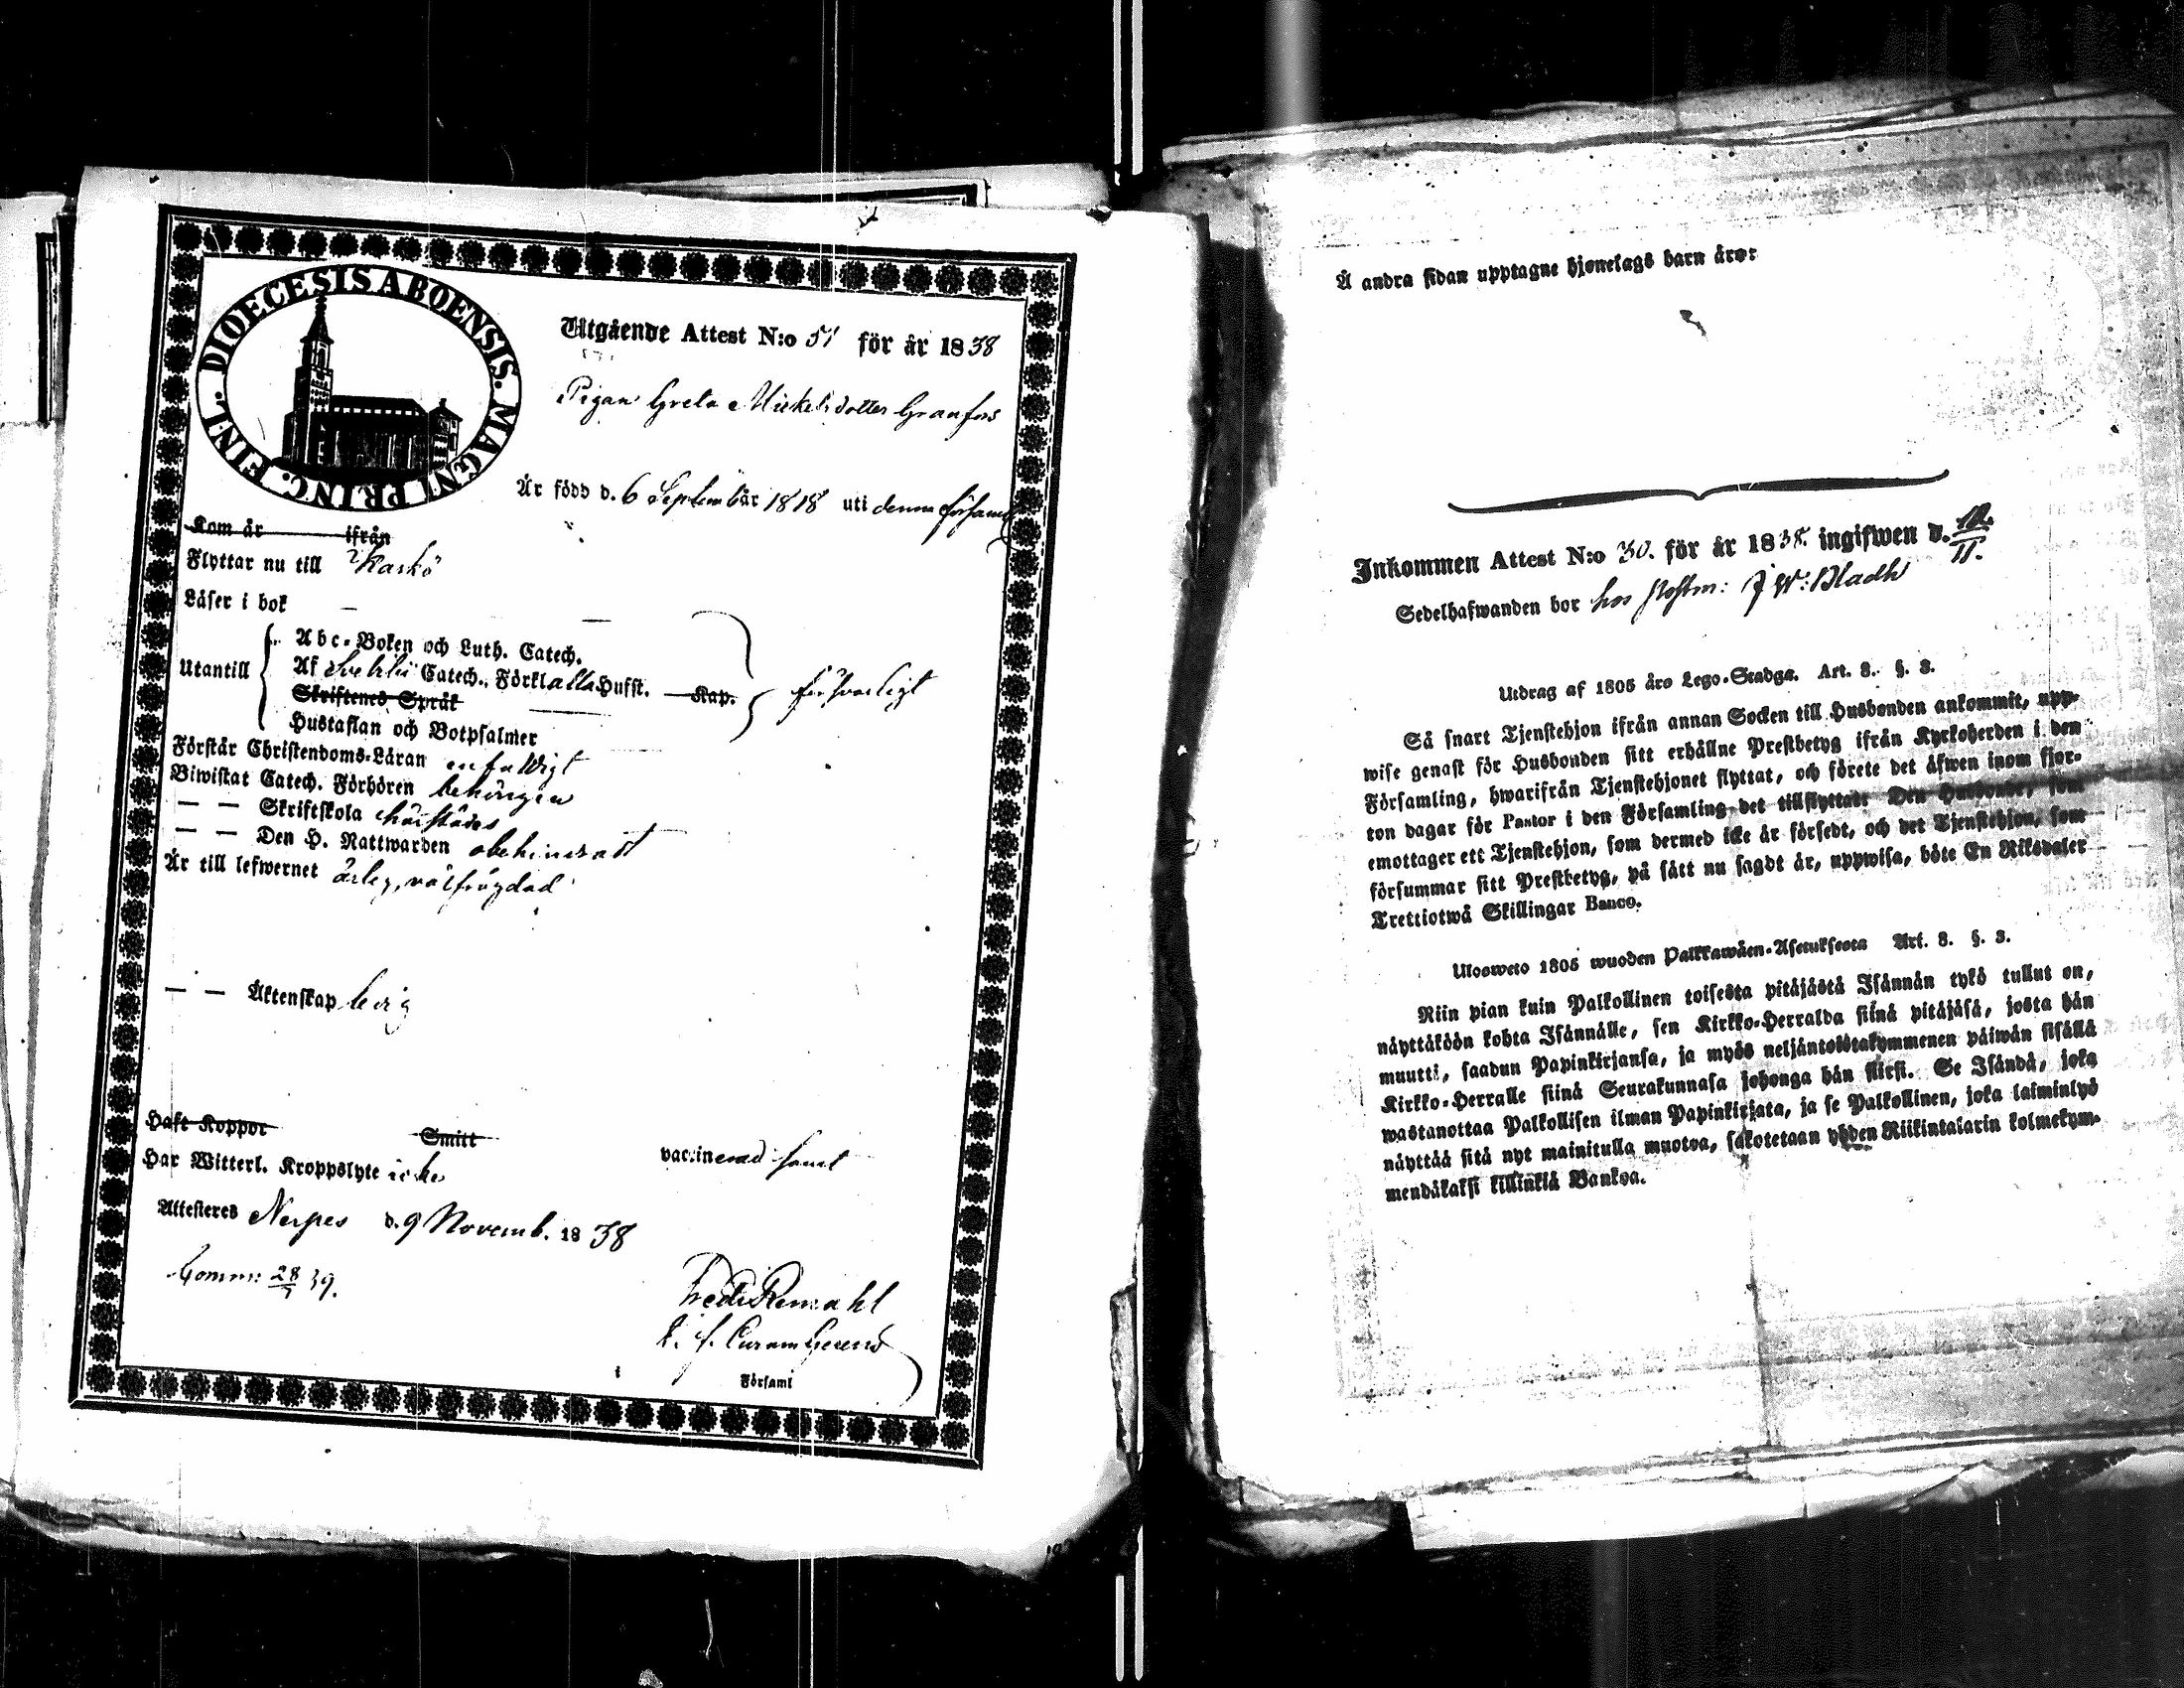 DIOECESIS ABOENSIS. MAGNI PRINC. FINL.
Utgående Attest N:o 51 för år 1838
Pigan Greta Mickelsdotter Granfors
År född d. 6 September 1818 uti denna församl
Kom år ifrån
Flyttar nu till Kaskö
Läser i bok —
Utantill
Abc-Boken och Luth. Catech.
Af Catech. Förkl alla Hufst. Kap.
försvarligt
Skriftenes Språk
Hustaflan och Botpsalmer
Förstår Christendoms-Läran enfaldigt
Biwistat Catech. Förhören behörigen
— — Skriftskola härstädes
— — Den H. Nattwarden obehindradt
Är till lefwernet ärlig, välfrägdad
— — Äktenskap ledig
Haft Koppor Smitt vaccinerad samt
Har Witterl. Kroppslyte icke
Attesteras Nerpes d. 9 Novemb. 1838
Comm: 28/7 39.
Fredr Remahl
k. f. Curam Gerens
Församl
Å andra sidan upptagne hjonelags barn äro:
Inkommen Attest N:o 30. för år 1838. ingifwen d. 12./11.
Sedelhafwanden bor hos J W: Bladh
Utdrag af 1805 års Lego-Stadga. Art. 8. §. 3.
Så snart Tjenstehjon ifrån annan Socken till Husbonden ankommit, upp-
wise genast för Husbonden sitt erhållne Prestbetyg ifrån Kyrkoherden i den
Församling, hwarifrån Tjenstehjonet flyttat, och förete det äfwen inom fjor-
ton dagar för Pastor i den Församling det tillflyttat. Den Husbonde, som
emottager ett Tjenstehjon, som dermed icke är försedt, och det Tjenstehjon, som
försummar sitt Prestbetyg, på sätt nu sagdt är, uppwisa, böte En Riksdaler
Trettiotwå Skillingar Banco.
Uloswето 1805 wuoden Palkkawäen-Asetuksesta Art. 8. §. 3.
Niin pian kuin Palkollinen toisesta pitäjästä Isännän tykö tullut on,
näyttäköön kohta Isännälle, sen Kirkko-Herralda siinä pitäjäsä, josta hän
muutti, saadun Papinkirjansa, ja myös neljäntoistakymmenen päiwän sisällä
Kirkko-Herralle siinä Seurakunnasa johonga hän siirsi. Se Isändä, joka
wastanottaa Palkollisen ilman Papinkirjata, ja se Palkollinen, joka laiminlyö
näyttää sitä nyt mainitulla muotoa, sakotetaan yhden Riikintalarin kolmekym-
mendäkaksi killinkiä Bankoa.